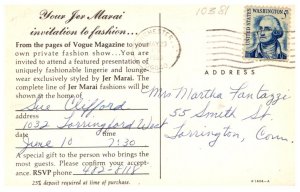 Your Jer Marai
invitation to fashion...
From the pages of Vogue Magazine to your
own private fashion show... You are
invited to attend a featured presentation of
uniquely fashionable lingerie and lounge-
wear exclusively styled by Jer Marai. The
complete line of Jer Marai fashions will be
shown at the home of
Sue Clifford
1032 Torringford West
date time
June 10 7:30
A special gift to the person who brings the
most guests. Please confirm your accept-
ance. RSVP phone 482-8118
25¢ deposit required at time of purchase.
10881
UNITED STATES
WASHINGTON 5¢
ADDRESS
Mrs Martha Fantazzi
55 Smith St
Torrington, Conn.